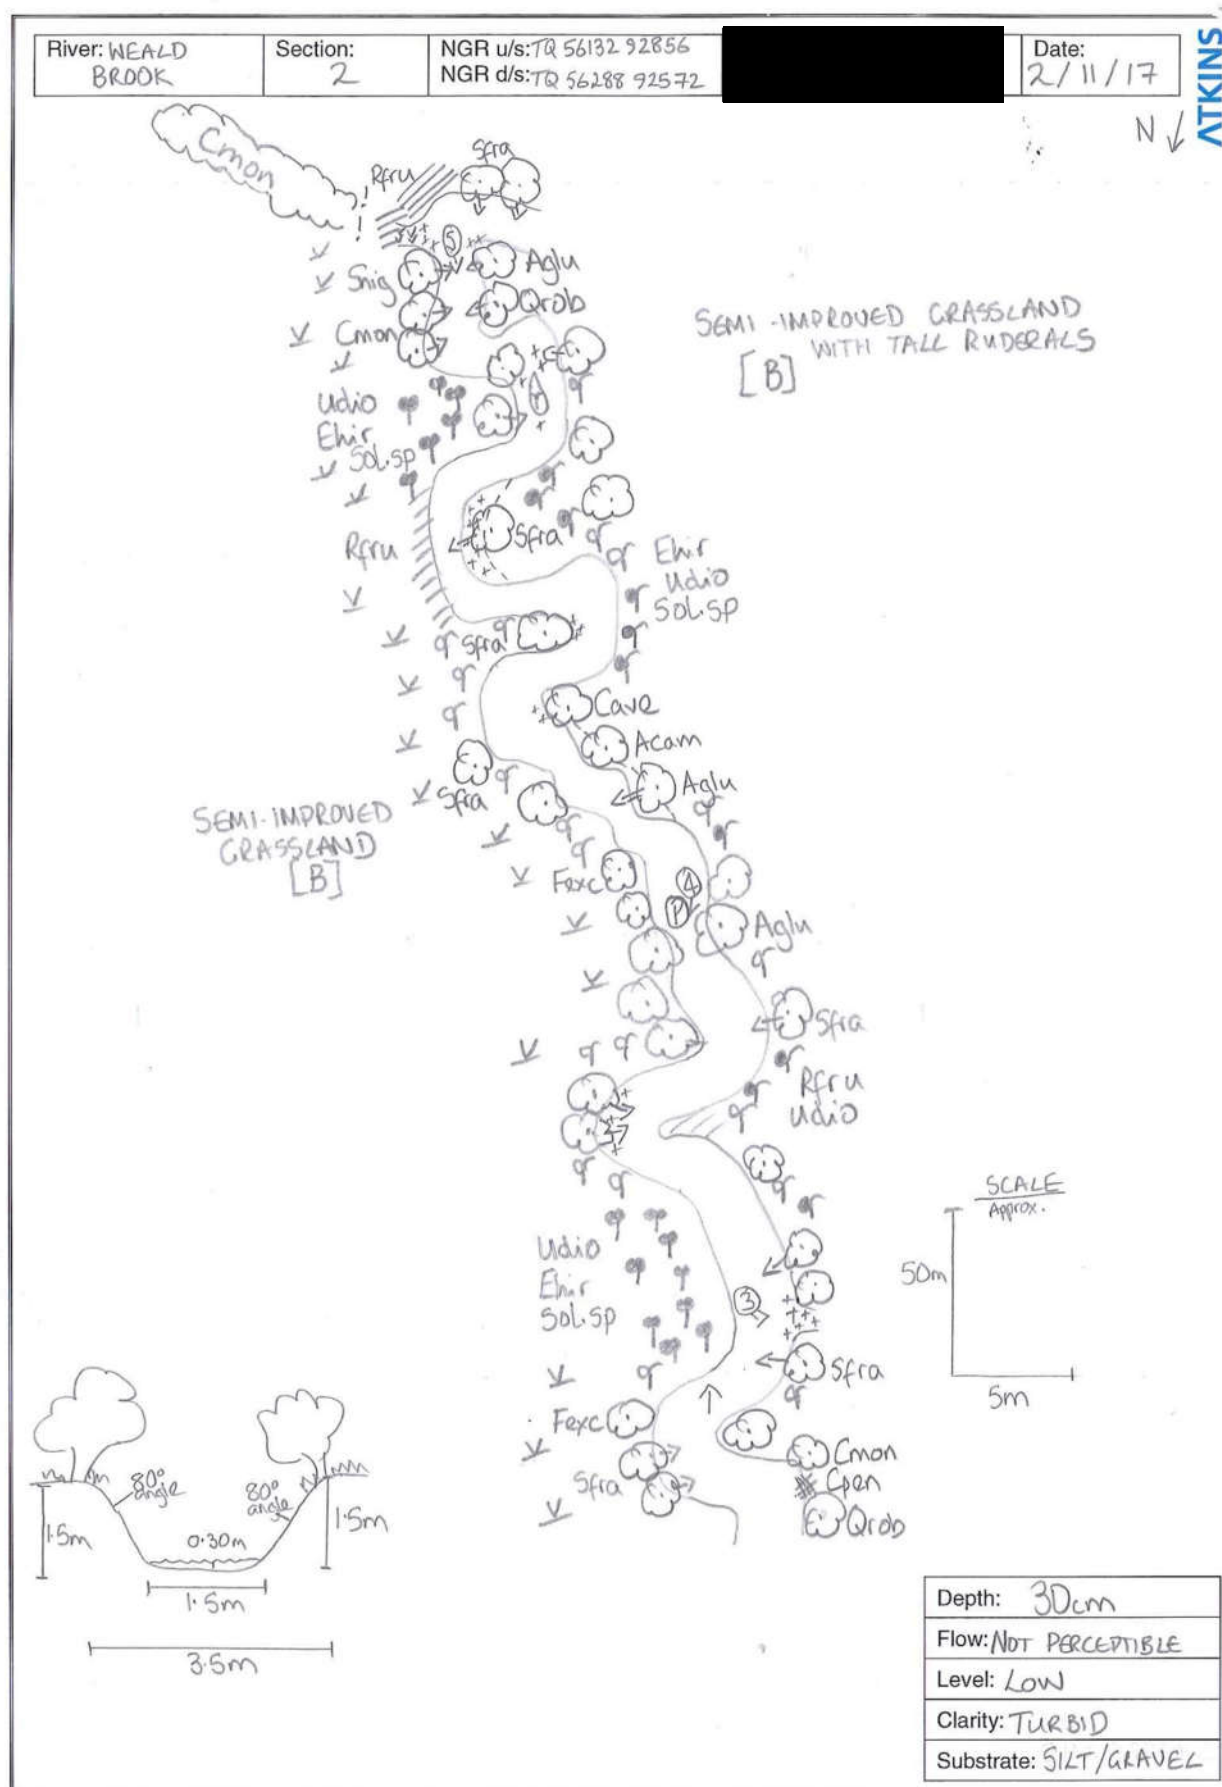 River: WEALD BROOK
Section: 2
NGR u/s: TQ 56132 92856
NGR d/s: TQ 56288 92572
Date: 2/11/17
ATKINS
N
Cmon
Rfru
Sfra
5
Snig
Aglu
Qrob
Cmon
SEMI-IMPROVED GRASSLAND
WITH TALL RUDERALS
[B]
Udio
Ehir
Sol.sp
Rfru
Sfra
Ehir
Udio
Sol.sp
Sfra
Cave
Acam
Aglu
Sfra
SEMI-IMPROVED
GRASSLAND
[B]
Fexc
4
P
Aglu
Sfra
Rfru
Udio
SCALE
Approx.
50m
5m
Udio
Ehir
Sol.sp
3
Sfra
Fexc
Cmon
Sfra
Cpen
Qrob
80°
angle
80°
angle
1.5m
0.30m
1.5m
1.5m
3.5m
Depth: 30cm
Flow: NOT PERCEPTIBLE
Level: LOW
Clarity: TURBID
Substrate: SILT/GRAVEL